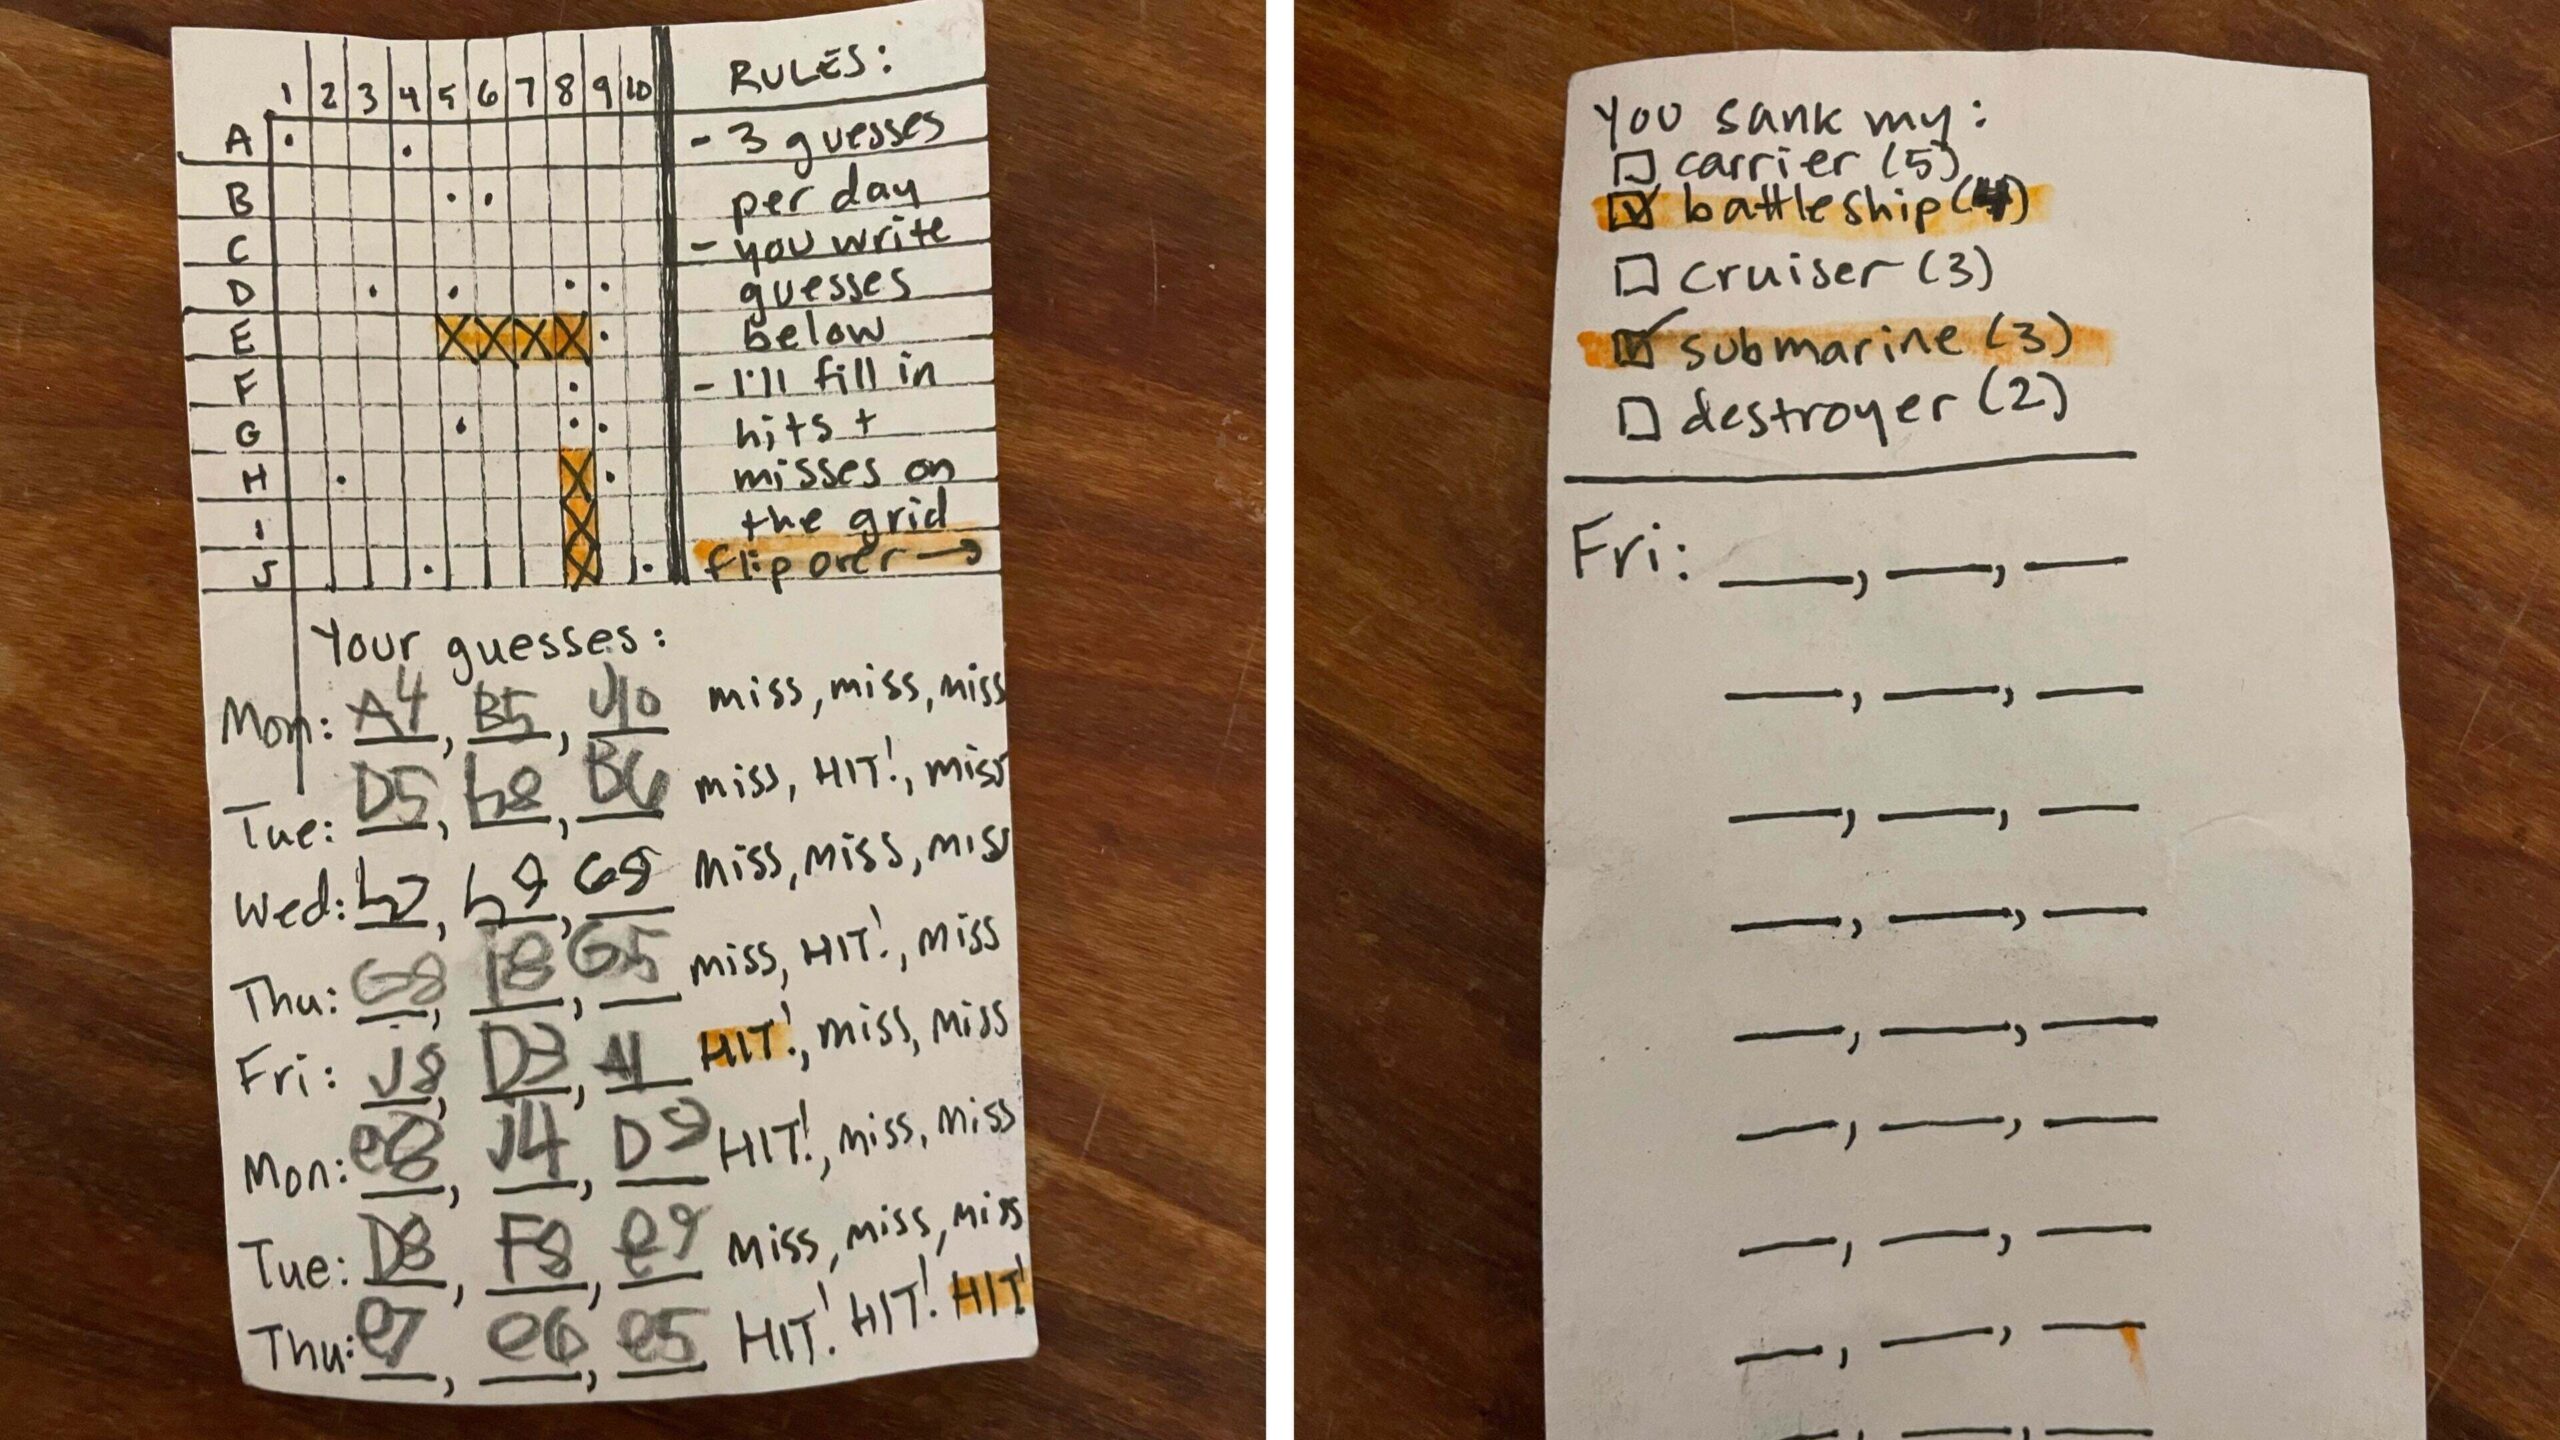 1 2 3 4 5 6 7 8 9 10
A
B
C
D
E X X X X
F
G
H X
I X
J X
RULES:
- 3 guesses
per day
- you write
guesses
below
- I'll fill in
hits +
misses on
the grid
flip over →
Your guesses:
Mon: A4, B5, J10 miss, miss, miss
Tue: D5, h8, B6 miss, HIT!, miss
Wed: h2, h9, G9 miss, miss, miss
Thu: G8, I8, G5 miss, HIT!, miss
Fri: J8, D3, A1 HIT!, miss, miss
Mon: e8, J4, D9 HIT!, miss, miss
Tue: D8, F8, e9 miss, miss, miss
Thu: e7, e6, e5 HIT! HIT! HIT!
You sank my:
carrier (5)
battleship (4)
cruiser (3)
submarine (3)
destroyer (2)
Fri: